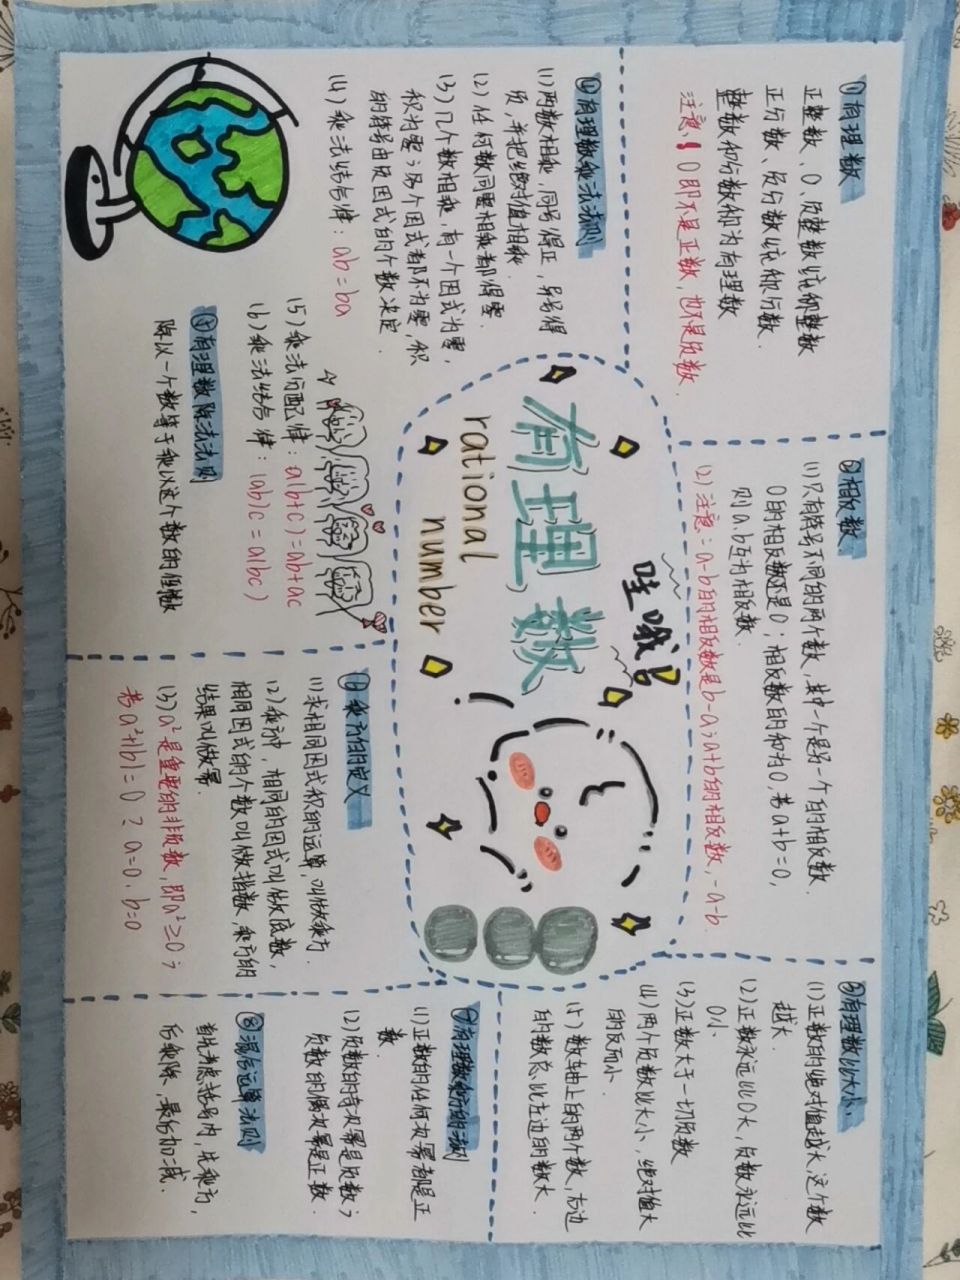 ①有理数
正整数、0、负整数统称整数
正分数、负分数统称分数.
整数和分数称为有理数
注意！0即不是正数，也不是负数
②相反数
(1)只有符号不同的两个数，其中一个是另一个的相反数.
0的相反数还是0；相反数的和为0，若a+b=0，
则a.b互为相反数
(2)注意：a-b的相反数是b-a；a+b的相反数，-a-b.
③有理数比大小
(1)正数的绝对值越大，这个数
越大.
(2)正数永远比0大，负数永远比
0小
(3)正数大于一切负数
(4)两个负数比大小，绝对值大
的反而小
(5)数轴上的两个数，右边
的数总比左边的数大
哇哦！
有理数
rational
number
④有理数乘法法则
(1)两数相乘，同号得正，异号得
负，并把绝对值相乘.
(2)任何数同零相乘都得零.
(3)几个数相乘，有一个因式为零，
积为零；各个因式都不为零，积
的符号由负因式的个数决定
(4)乘法结合律：ab=ba
(5)乘法分配律：a(b+c)=ab+ac
(6)乘法结合律：(ab)c=a(bc)
⑤有理数除法法则
除以一个数等于乘以这个数的倒数
⑥乘方的定义
(1)求相同因式积的运算，叫做乘方.
(2)乘方中，相同的因式叫做底数，
相同因式的个数叫做指数，乘方的
结果叫做幂.
(3)a²是重要的非负数，即a²≥0；
若a²+|b|=0？a=0.b=0
⑦有理数乘方的法则
(1)正数的任何次幂都是正
数.
(2)负数的奇次幂是负数；
负数的偶次幂是正数.
⑧混合运算法则
首先考虑括号内，先乘方，
后乘除，最后加减.